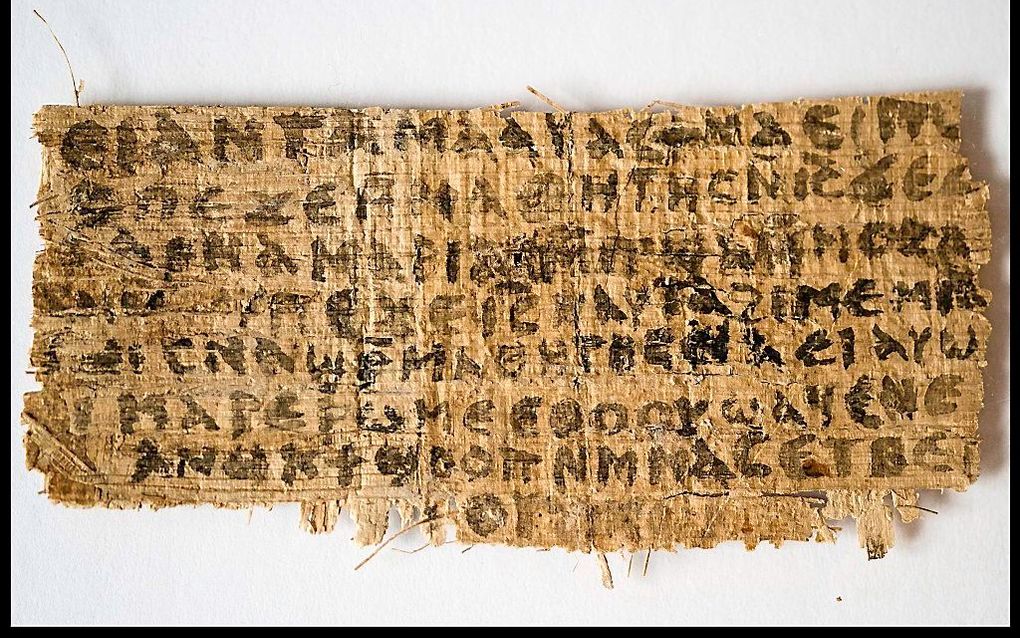 ⲉⲓ ⲁⲛ ⲧⲁⲙⲁⲁⲩ ⲁⲥϯ ⲛⲁⲉⲓ ⲡ
ⲡⲉϫⲉ ⲙⲙⲁⲑⲏⲧⲏⲥ ⲛⲓ̅ⲥ̅ ϫⲉ ⲥ
ⲁⲣⲛⲁ ⲙⲁⲣⲓϩⲁⲙ ⲙⲡϣⲁ
ⲡⲉϫⲉ ⲓ̅ⲥ̅ ⲛⲁⲩ ⲧⲁϩⲓⲙⲉ ⲙⲛ
ⲥⲛⲁϣⲣ̅ⲙⲁⲑⲏⲧⲏⲥ ⲛⲁⲉⲓ ⲁⲩⲱ
ⲙⲁⲣⲉⲣⲱⲙⲉ ⲉⲑⲟⲟⲩ ϣⲁϥⲉ ⲛⲉ
ⲁⲛⲟⲕ ϯϣⲟⲟⲡ ⲛⲙⲙⲁⲥ ⲉⲧⲃⲉ